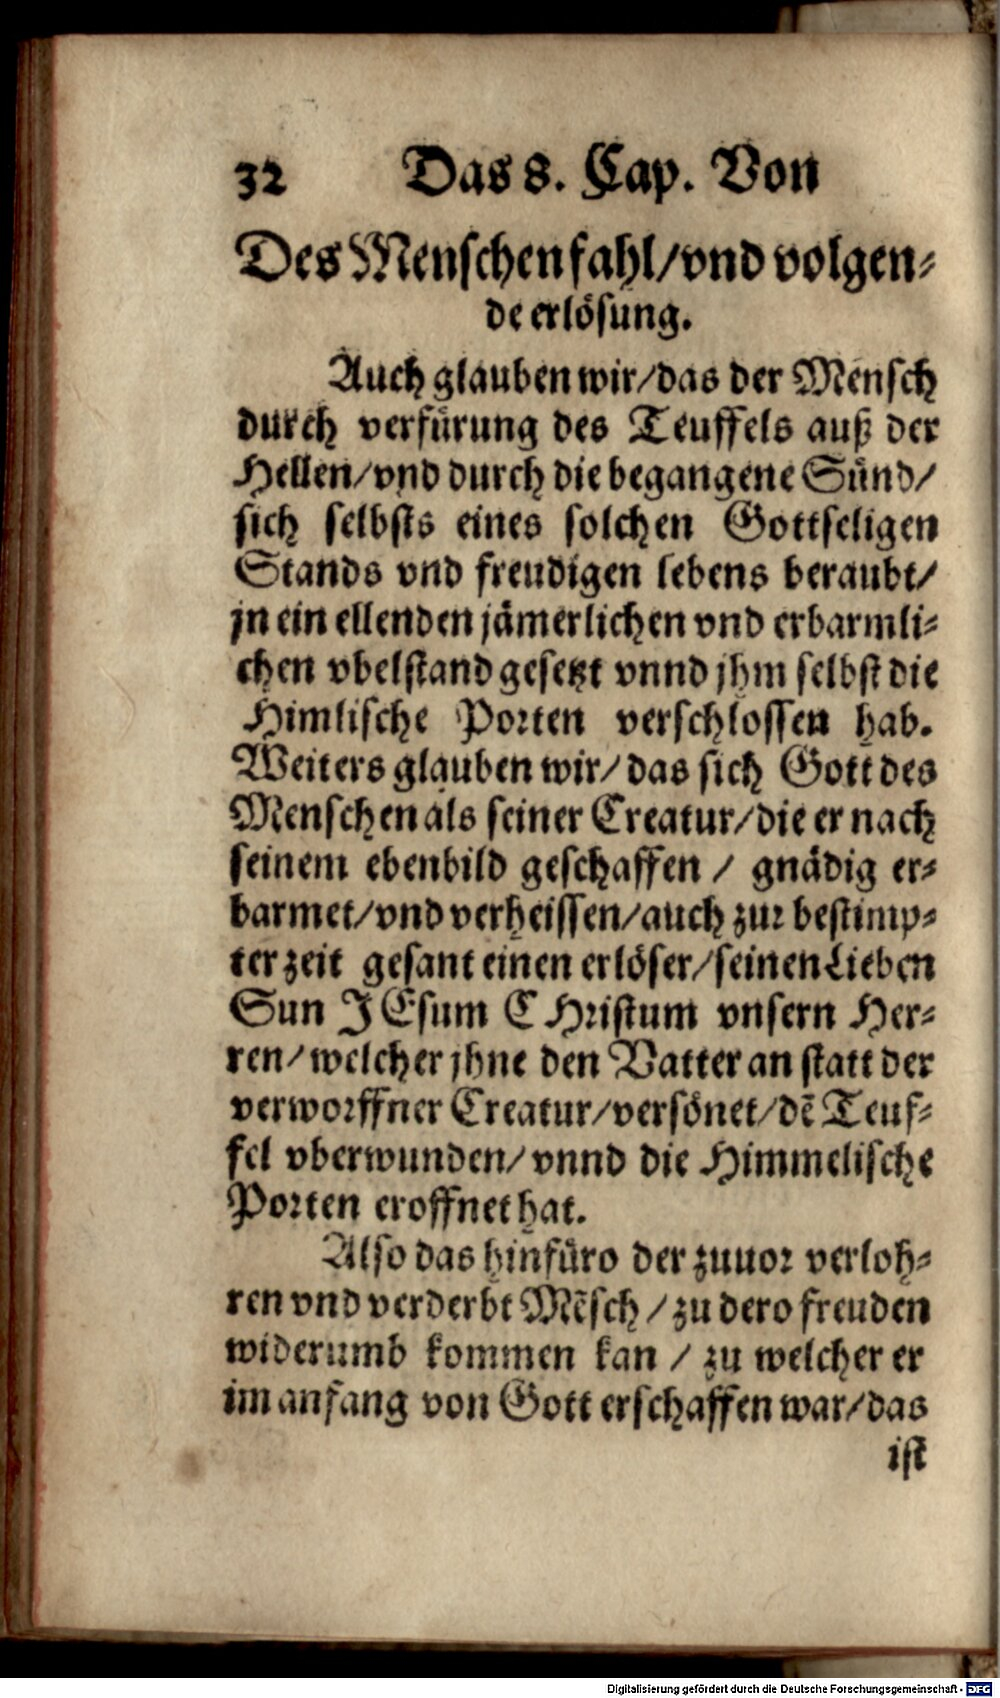 32 Das 8. Cap. Von
Des Menschen fahl/vnd volgen-
de erlösung.
Auch glauben wir/das der Mensch
durch verfürung des Teuffels auß der
Hellen/vnd durch die begangene Sünd/
sich selbsts eines solchen Gottseligen
Stands vnd freudigen lebens beraubt/
jn ein ellenden jämerlichen vnd erbarmli-
chen vbelstand gesetzt vnnd jhm selbst die
Himlische Porten verschlossen hab.
Weiters glauben wir/das sich Gott des
Menschen als seiner Creatur/die er nach
seinem ebenbild geschaffen / gnädig er-
barmet/vnd verheissen/auch zur bestimp-
ter zeit gesant einen erlöser/seinen Lieben
Sun JEsum CHristum vnsern Her-
ren/welcher jhne den Vatter an statt der
verworffner Creatur/versönet/dē Teuf-
fel vberwunden/vnnd die Himmelische
Porten eroffnet hat.
Also das hinfüro der zuuor verloh-
ren vnd verderbt Mēsch / zu dero freuden
widerumb kommen kan / zu welcher er
im anfang von Gott erschaffen war/das
ist
Digitalisierung gefördert durch die Deutsche Forschungsgemeinschaft - DFG